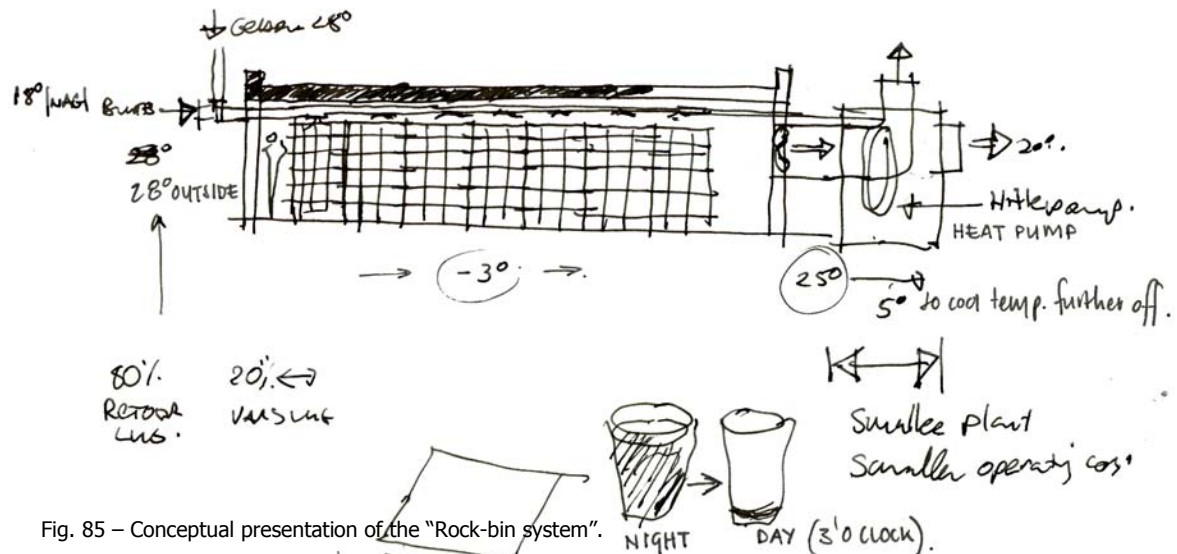 28°
18° NAG
28°
28° OUTSIDE
20°.
HEAT PUMP
→ -3° →.
25°
5° to cool temp. further off.
80%. 20% ↔
RETOUR
LUG.
VARSLUG
Smaller plant
Smaller operating cost
NIGHT → DAY (3'O CLOCK).
Fig. 85 – Conceptual presentation of the “Rock-bin system”.